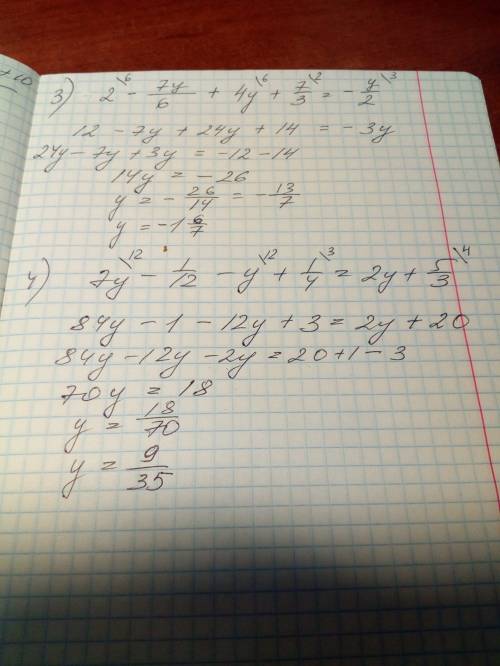 +10
3) 2\6 - 7y/6 + 4y\6 + 7/3\2 = - y/2\3
12 - 7y + 24y + 14 = - 3y
24y - 7y + 3y = -12 - 14
14y = - 26
y = - 26/14 = - 13/7
y = -1 6/7
4) 7y\12 - 1/12 - y\12 + 1/4\3 = 2y + 5/3\4
84y - 1 - 12y + 3 = 2y + 20
84y - 12y - 2y = 20 + 1 - 3
70y = 18
y = 18/70
y = 9/35